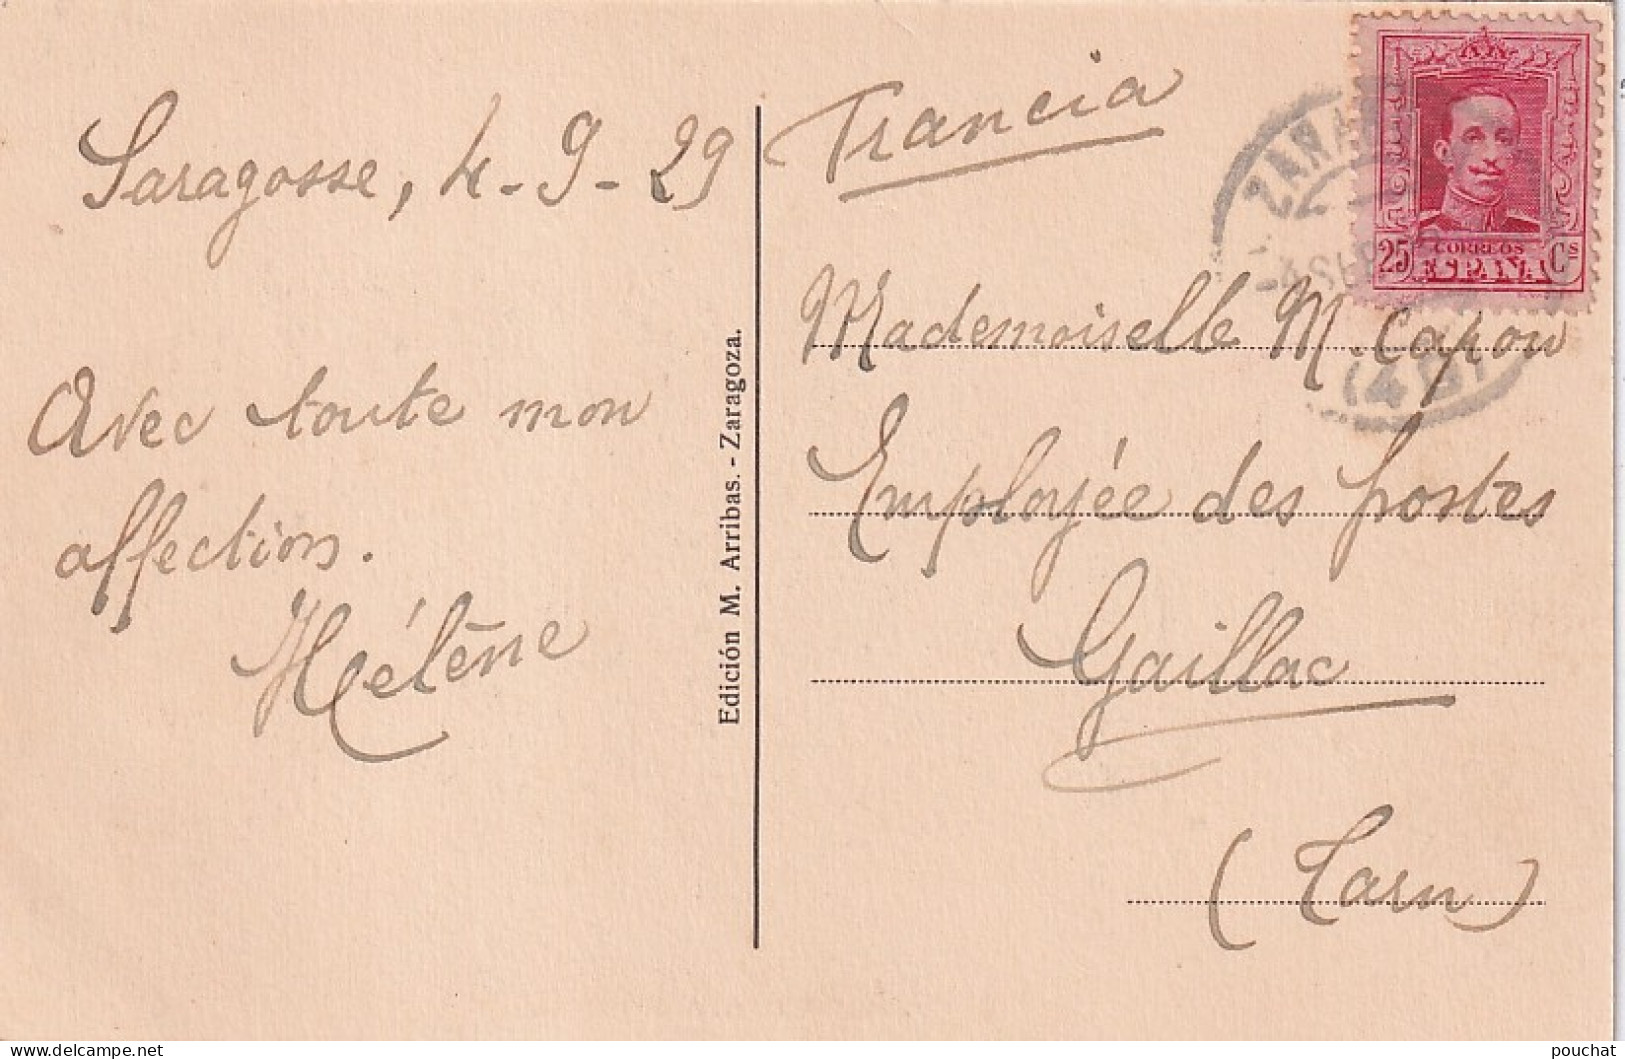 Saragosse, 4-9-29
Avec toute mon
affection.
Hélène
Edición M. Arribas. - Zaragoza.
Francia
25 CORREOS Cs
ESPAÑA
Mademoiselle M. Capou
Employée des postes
Gaillac
(Tarn)
pouchat